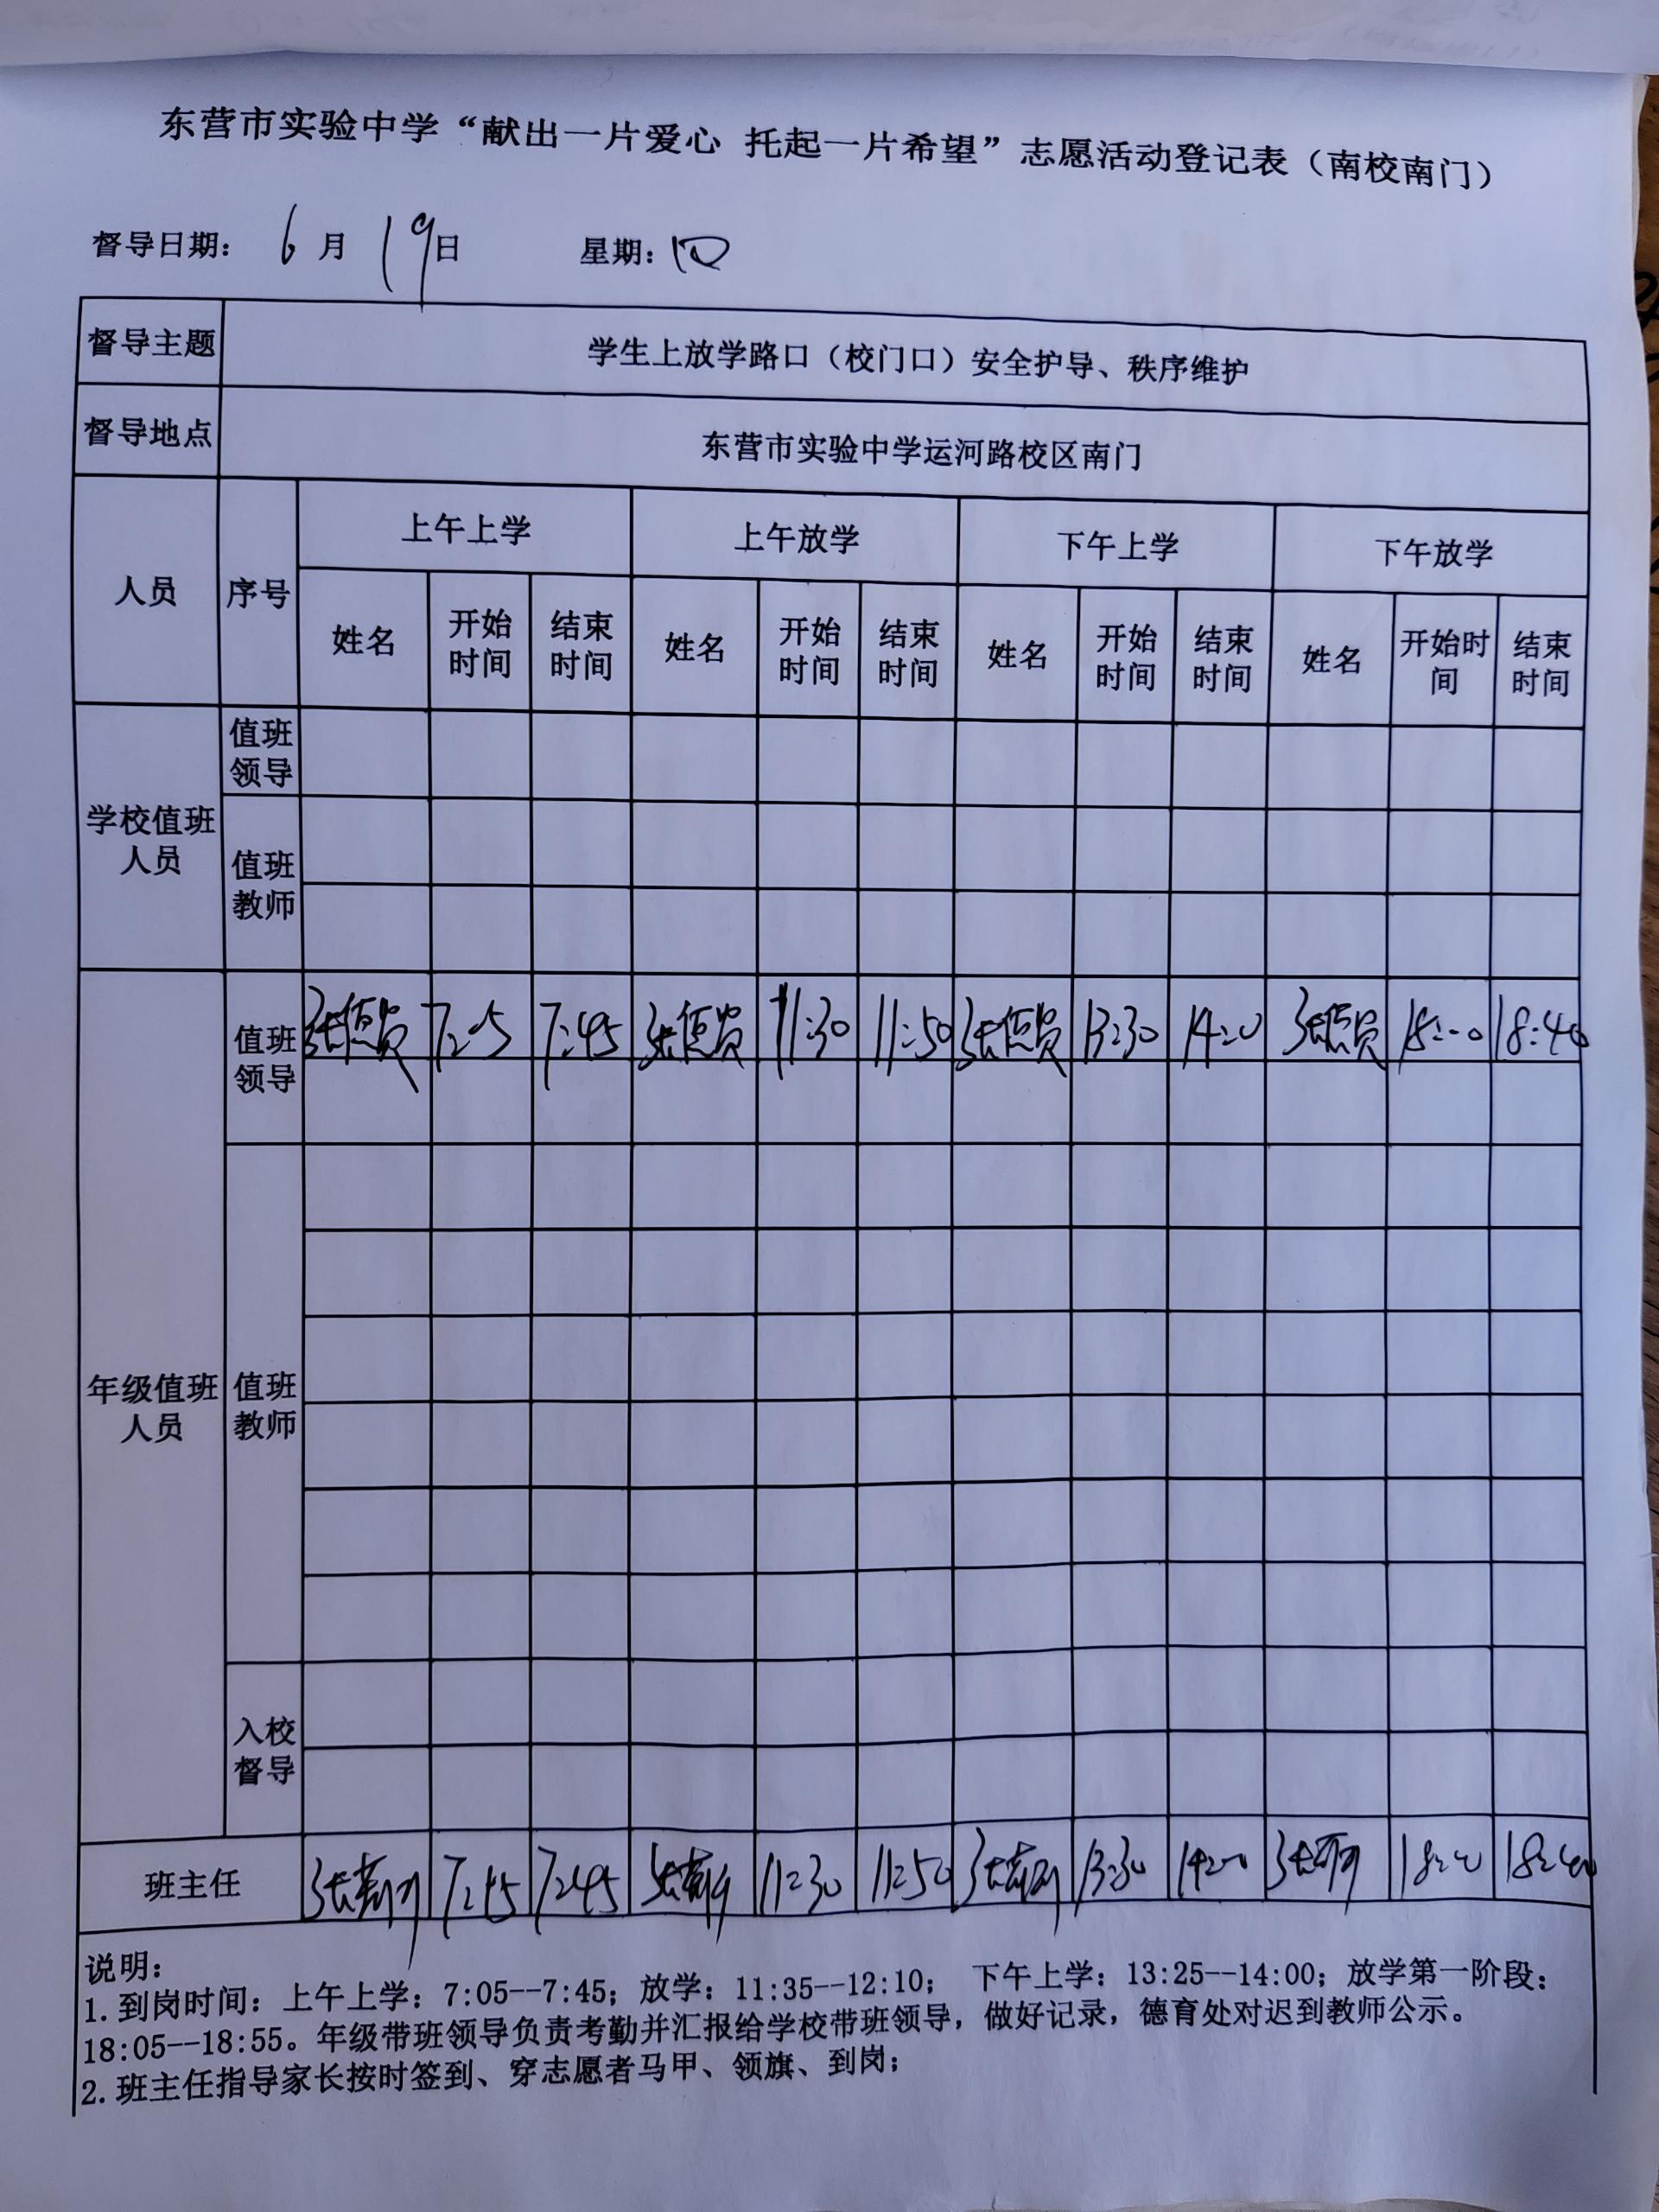 东营市实验中学“献出一片爱心 托起一片希望”志愿活动登记表（南校南门）
督导日期： 6 月 19 日 星期：四
督导主题 学生上放学路口（校门口）安全护导、秩序维护
督导地点 东营市实验中学运河路校区南门
人员 序号 上午上学 上午放学 下午上学 下午放学
姓名 开始时间 结束时间 姓名 开始时间 结束时间 姓名 开始时间 结束时间 姓名 开始时间 结束时间
学校值班人员 值班领导
值班教师
年级值班人员 值班领导 张 7:45 张 11:30 11:50 张 13:30 张 18:40
值班教师
入校督导
班主任 张 7:15 7:45 张 11:30 11:50 张 13:30 张 18:40
说明：
1.到岗时间：上午上学：7:05--7:45；放学：11:35--12:10； 下午上学：13:25--14:00；放学第一阶段：
18:05--18:55。年级带班领导负责考勤并汇报给学校带班领导，做好记录，德育处对迟到教师公示。
2.班主任指导家长按时签到、穿志愿者马甲、领旗、到岗；